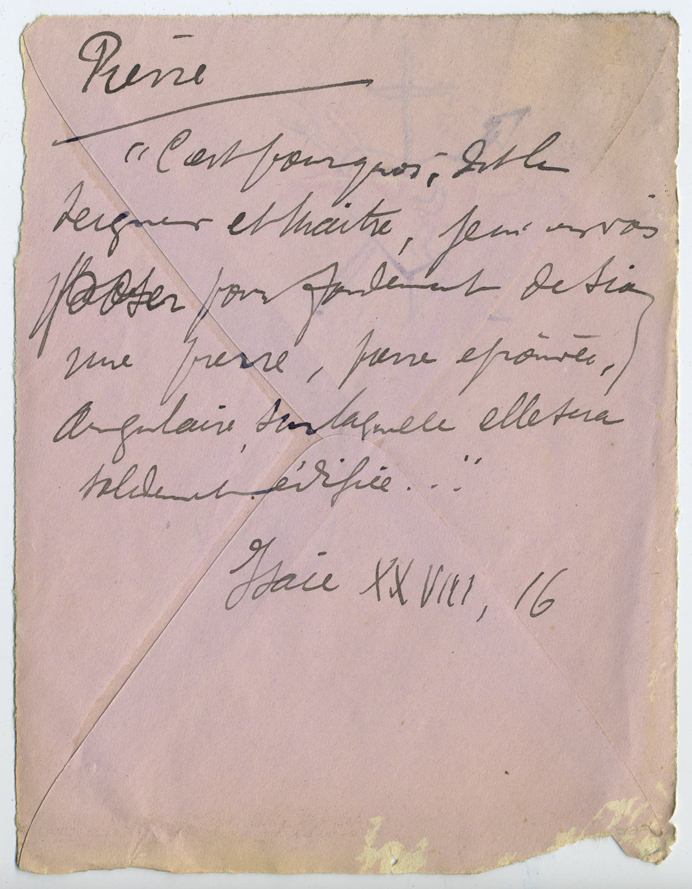 Pierre
"C'est pourquoi, dit le
Seigneur et Maître, je m'en vais
poser pour fondement de Sion
une pierre, pierre éprouvée,
angulaire, sur laquelle elle sera
solidement édifiée..."
Isaïe XXVIII, 16